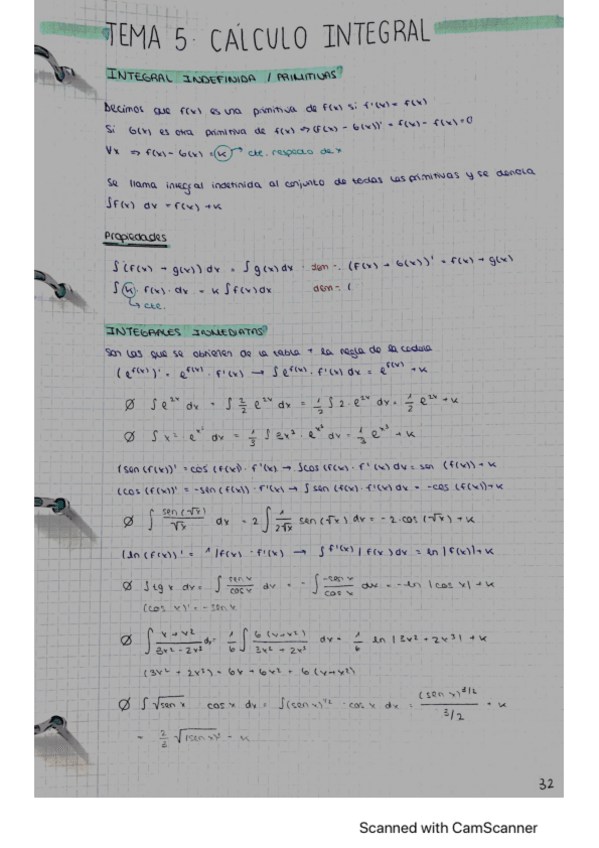 TEMA 5. CÁLCULO INTEGRAL
INTEGRAL INDEFINIDA / PRIMITIVAS
Decimos que F(x) es una primitiva de f(x) si F'(x) = f(x)
Si G(x) es otra primitiva de f(x) ⇒ (F(x) - G(x))' = f(x) - f(x) = 0
∀x ⇒ F(x) - G(x) = k → cte. respecto de x
Se llama integral indefinida al conjunto de todas las primitivas y se denota
∫f(x) dx = F(x) + k
Propiedades
∫(f(x) + g(x)) dx = ∫g(x) dx · dem-. (F(x) + G(x))' = f(x) + g(x)
∫ k · f(x) · dx = k ∫f(x) dx dem-. (
↳ cte.
INTEGRALES INMEDIATAS
Son las que se obtienen de la tabla + la regla de la cadena
(e^f(x))' = e^f(x) · f'(x) → ∫e^f(x) · f'(x) dx = e^f(x) + k
Ø ∫e^2x dx = ∫ 2/2 e^2x dx = 1/2 ∫ 2 · e^2x dx = 1/2 e^2x + k
Ø ∫ x² · e^x³ dx = 1/3 ∫ 3x² · e^x³ dx = 1/3 e^x³ + k
(sen (f(x))' = cos (f(x) · f'(x) → ∫cos (f(x) · f'(x) dx = sen (f(x)) + k
(cos (f(x))' = -sen (f(x)) · f'(x) → ∫ sen (f(x) · f'(x) dx = -cos (f(x)) + k
Ø ∫ sen(√x)/√x dx = 2 ∫ 1/2√x sen (√x) dx = -2 · cos (√x) + k
(ln (f(x))' = 1/f(x) · f'(x) → ∫ f'(x)/f(x) dx = ln |f(x)| + k
Ø ∫tg x dx = ∫ sen x/cos x dx = - ∫ -sen x/cos x dx = -ln |cos x| + k
(cos x)' = -sen x
Ø ∫ x + x²/3x² - 2x³ dx = 1/6 ∫ 6(x + x²)/3x² + 2x³ dx = 1/6 ln |3x² + 2x³| + k
(3x² + 2x³) = 6x + 6x² = 6(x + x²)
Ø ∫ √sen x cos x dx = ∫(sen x)^1/2 · cos x dx = (sen x)^3/2/3/2 + k
= 2/3 √(sen x)³ + k
32
Scanned with CamScanner